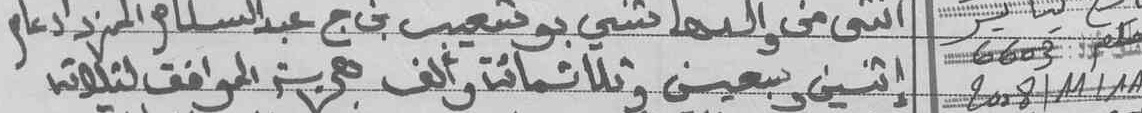 انثى من والدها تنسي بوشعيب بن ج عبد السلام المزداد عام
إثنين وسبعين وثلاثمائة وألف هجرية الموافق لثلاثة
6603
2008/11/11